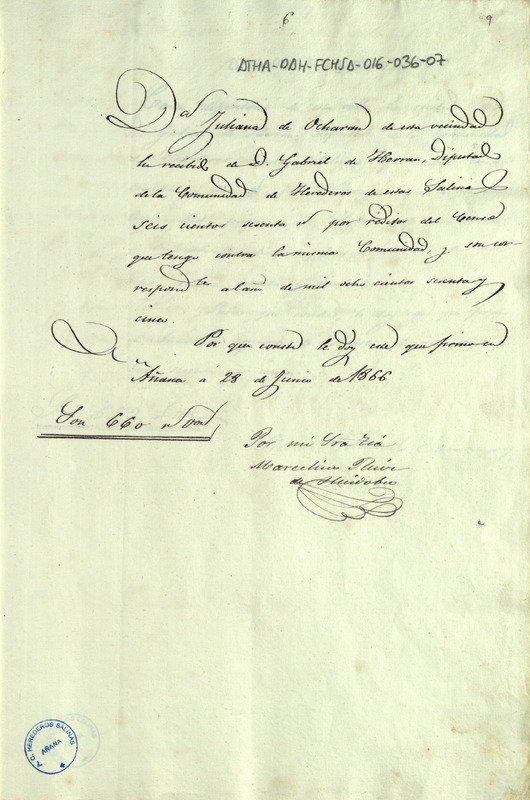 6 9
ATHA-DAH-FCHSA-016-036-07
Dª Juliana de Ocharan de esta vecindad
he recibido de D. Gabriel de Herran, Diputado
de la Comunidad de Herederos de estas Salinas
Seis cientos sesenta rˢ por réditos del Censo
que tengo contra la misma Comunidad, y son cor-
respondtes al año de mil ocho cientos sesenta y
cinco.
Por que conste le doy este que firmo en
Añana a 28 de Junio de 1866
Son 660 rˢ von
Por mi Sra Tia
Marcelino Ruiz
de Huidobro
Y. C. HEREDEROS SALINAS
AÑANA